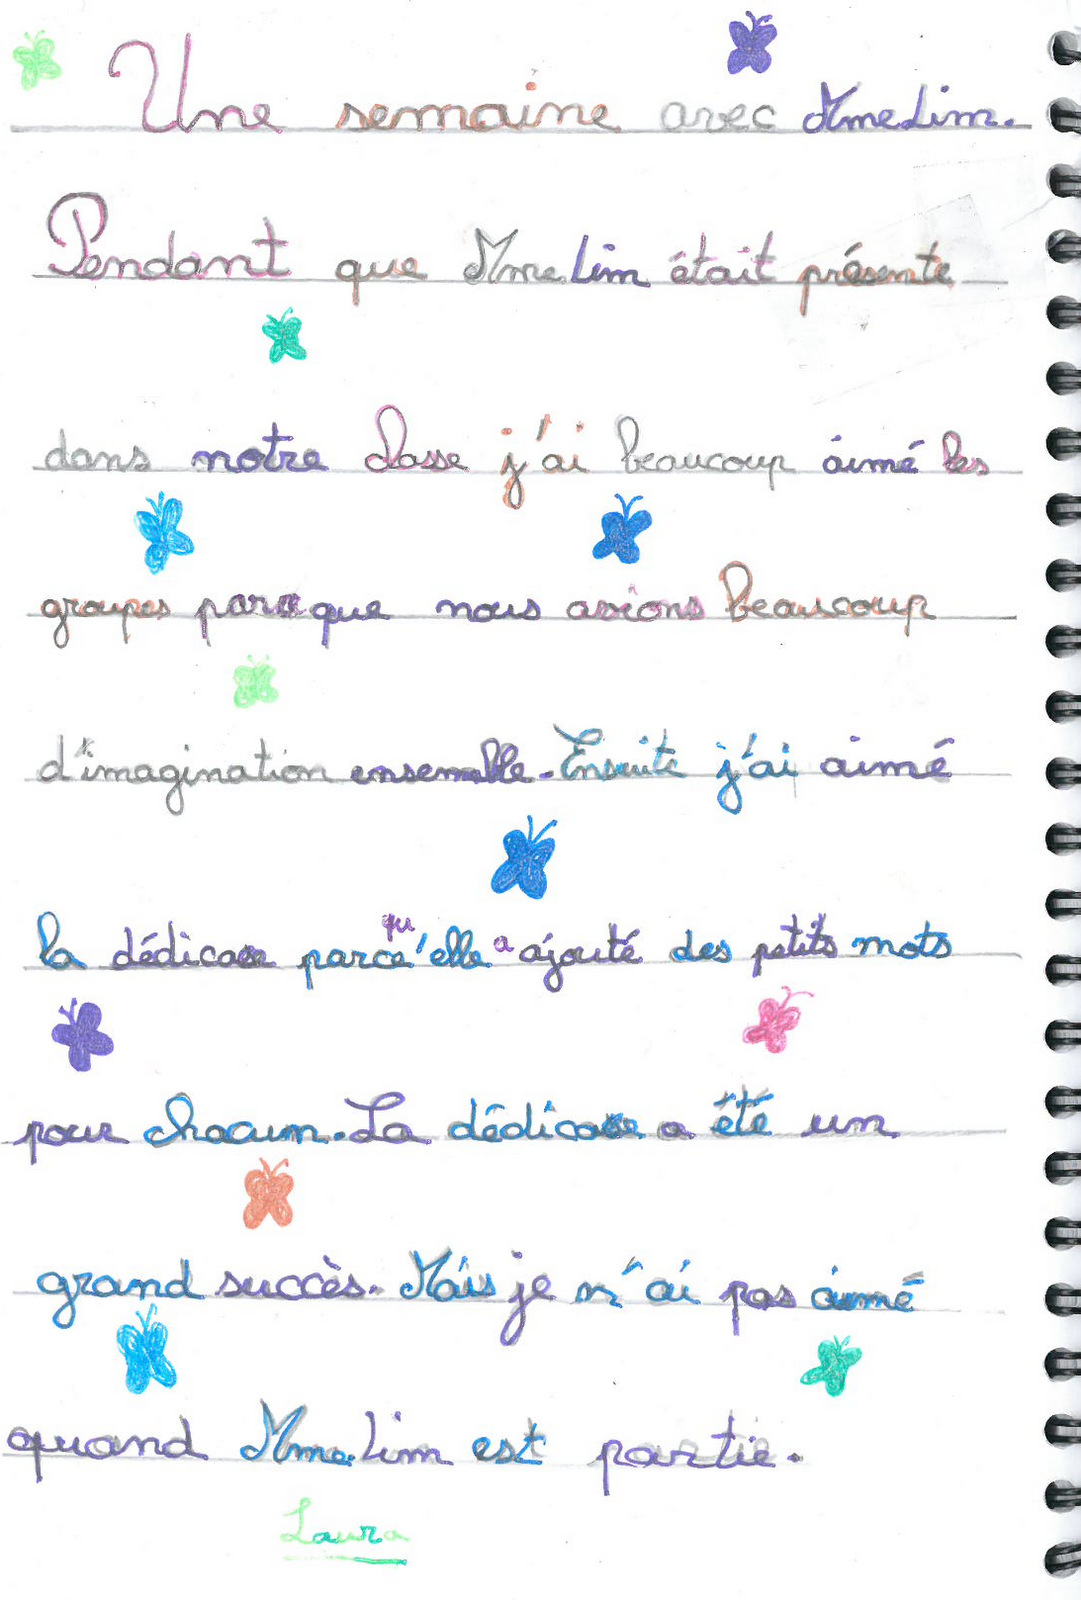 Une semaine avec Mme Lim.
Pendant que Mme Lim était présente
dans notre classe j'ai beaucoup aimé les
groupes parce que nous avions beaucoup
d'imagination ensemble. Ensuite j'ai aimé
la dédicace parce qu'elle a ajouté des petits mots
pour chacun. La dédicace a été un
grand succès. Mais je n'ai pas aimé
quand Mme Lim est partie.
Laura